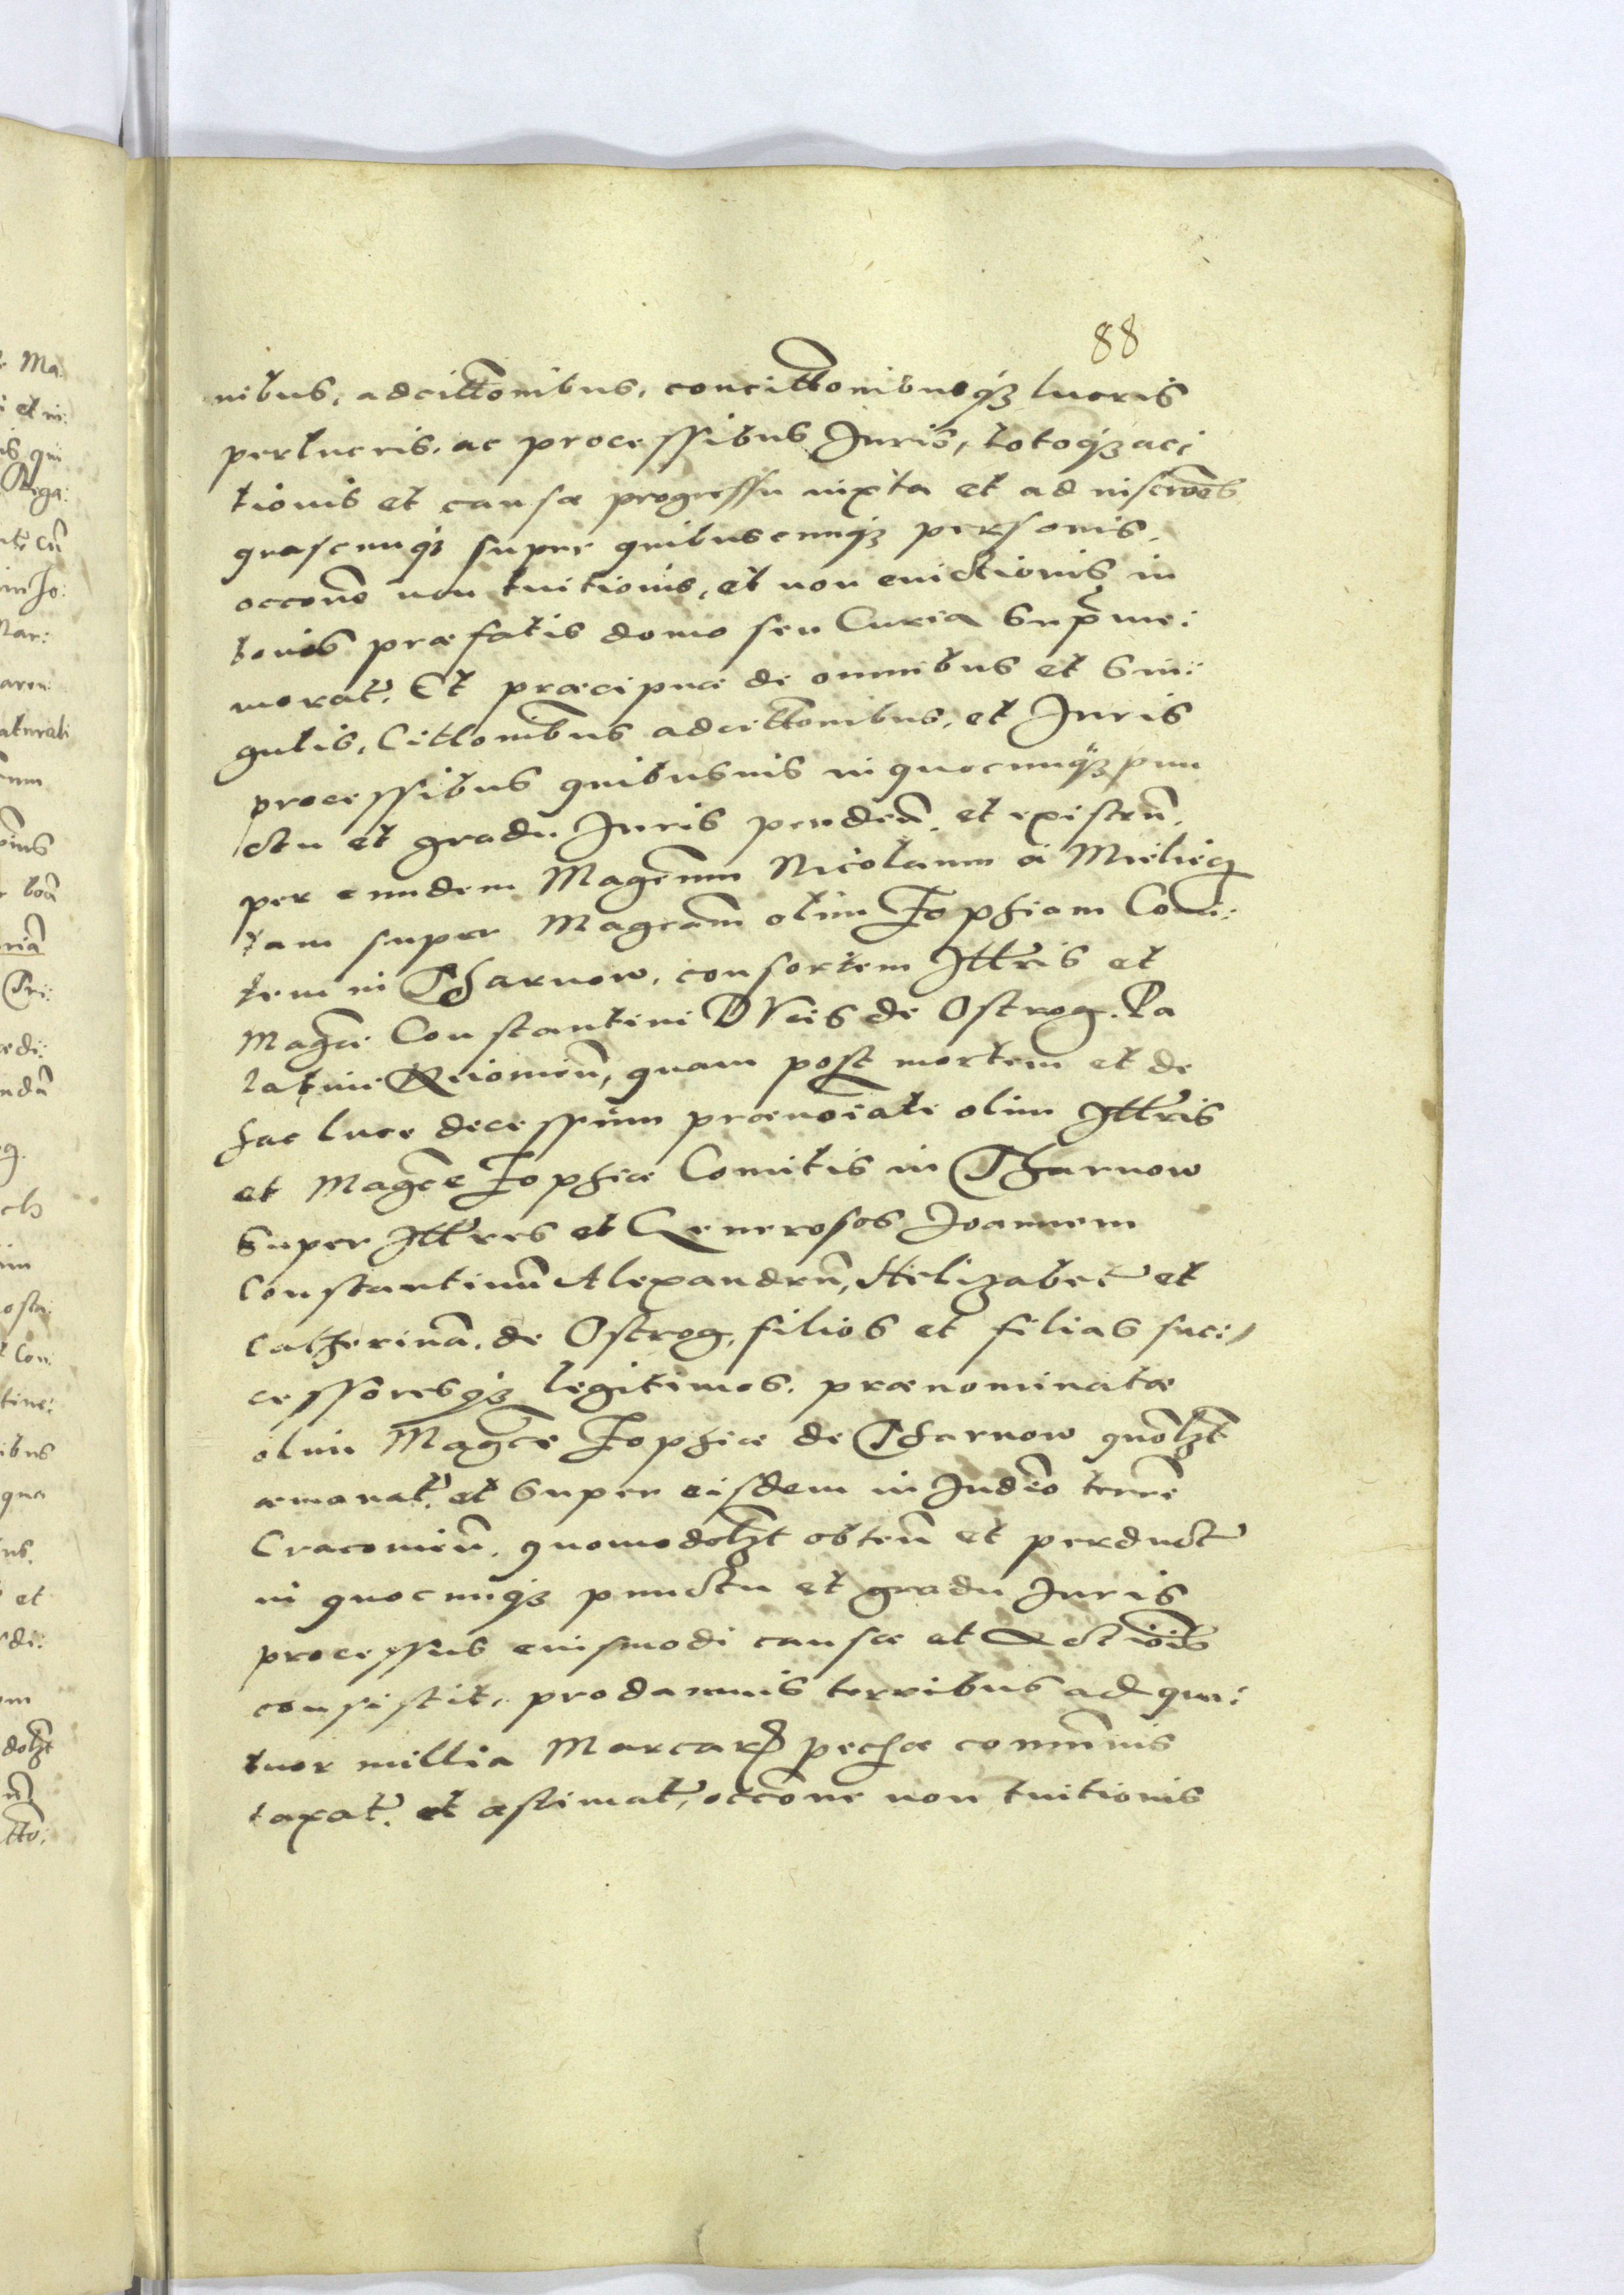 88
nibus, adcittõnibus, concittõnibusq̃ʒ lucris
perlucris, ac processibus Iuris, totoq̃ʒ ac:
tionis et causæ progressu iuxta et ad inscrões
quascunq̃ʒ super quibuscunq̃ʒ personis,
occone non tuitionis, et non euictionis in
bonis præfatis domo seu Curia Sup̃me:
morat̃. Et præcipue de omnibus et Sin:
gulis, Cittonibus adcittonibus, et Iuris
processibus quibusuis in quocunq̃ʒ pun
ctu et gradu Iuris penden̄. et existen̄.
per eundem Mag̃cum Nicolaum à Mieliecz
tam super Magcam olim Zophiam Comi:
tem in Tharnow, consortem Illr̃is et
Mag̃ci Constantini Ducis de Ostrog. Pa
latini Kiiouien̄, quam post mortem et de
hac luce decessum prænoĩate olim Illr̃is
et Mag̃cæ Zophiæ Comitis in Tharnow
Super Illr̃es et Generosos Joannem
Constantinũ Alexandrũ, Helizabet̃ et
Catherinã. de Ostrog, filios et filias suc:
cessoresq̃ʒ legitimos. prænominatæ
olim Mag̃cæ Zophiæ de Tharnow quõlʒt
æmanat̃. et Super eisdem in Iudēo terrē
Cracouien̄. quomodolʒt obten̄ et perduct̃
in quocunq̃ʒ punctu et gradu Iuris
processus euismodi causæ et Actiõis
consistit, pro damnis terribus ad qua:
tuor millia Marcarꝝ pechæ com̃unis
taxat̃. et æstimat̃, occõne non tuitionis